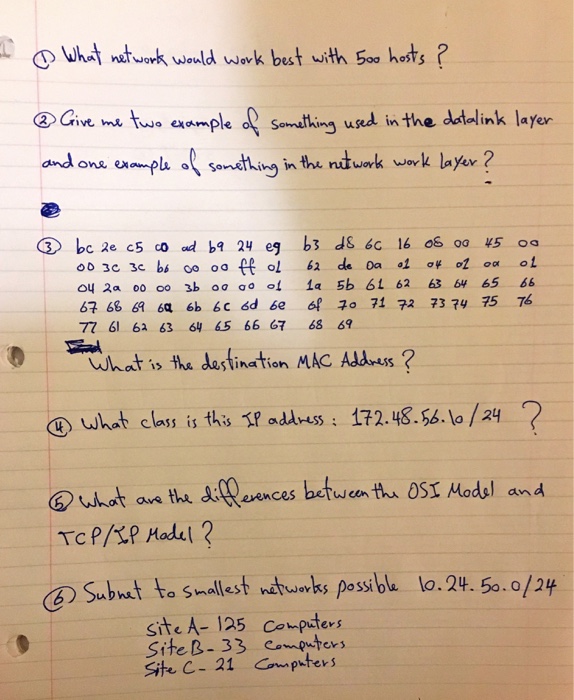 ① What network would work best with 500 hosts ?
② Give me two example of something used in the datalink layer
and one example of something in the network work layer ?
③ bc 2e c5 c0 ad b9 24 eg b3 d8 6c 16 08 00 45 00
00 3c 3c b6 00 00 ff 01 62 de 0a 01 04 02 0a 01
04 2a 00 00 3b 00 00 01 1a 5b 61 62 63 64 65 66
67 68 69 6a 6b 6c 6d 6e 6f 70 71 72 73 74 75 76
77 61 62 63 64 65 66 67 68 69
What is the destination MAC Address ?
④ What class is this IP address : 172.48.56.10/24 ?
⑤ What are the differences between the OSI Model and
TCP/IP Model ?
⑥ Subnet to smallest networks possible 10.24.50.0/24
Site A - 125 Computers
Site B - 33 Computers
Site C - 21 Computers